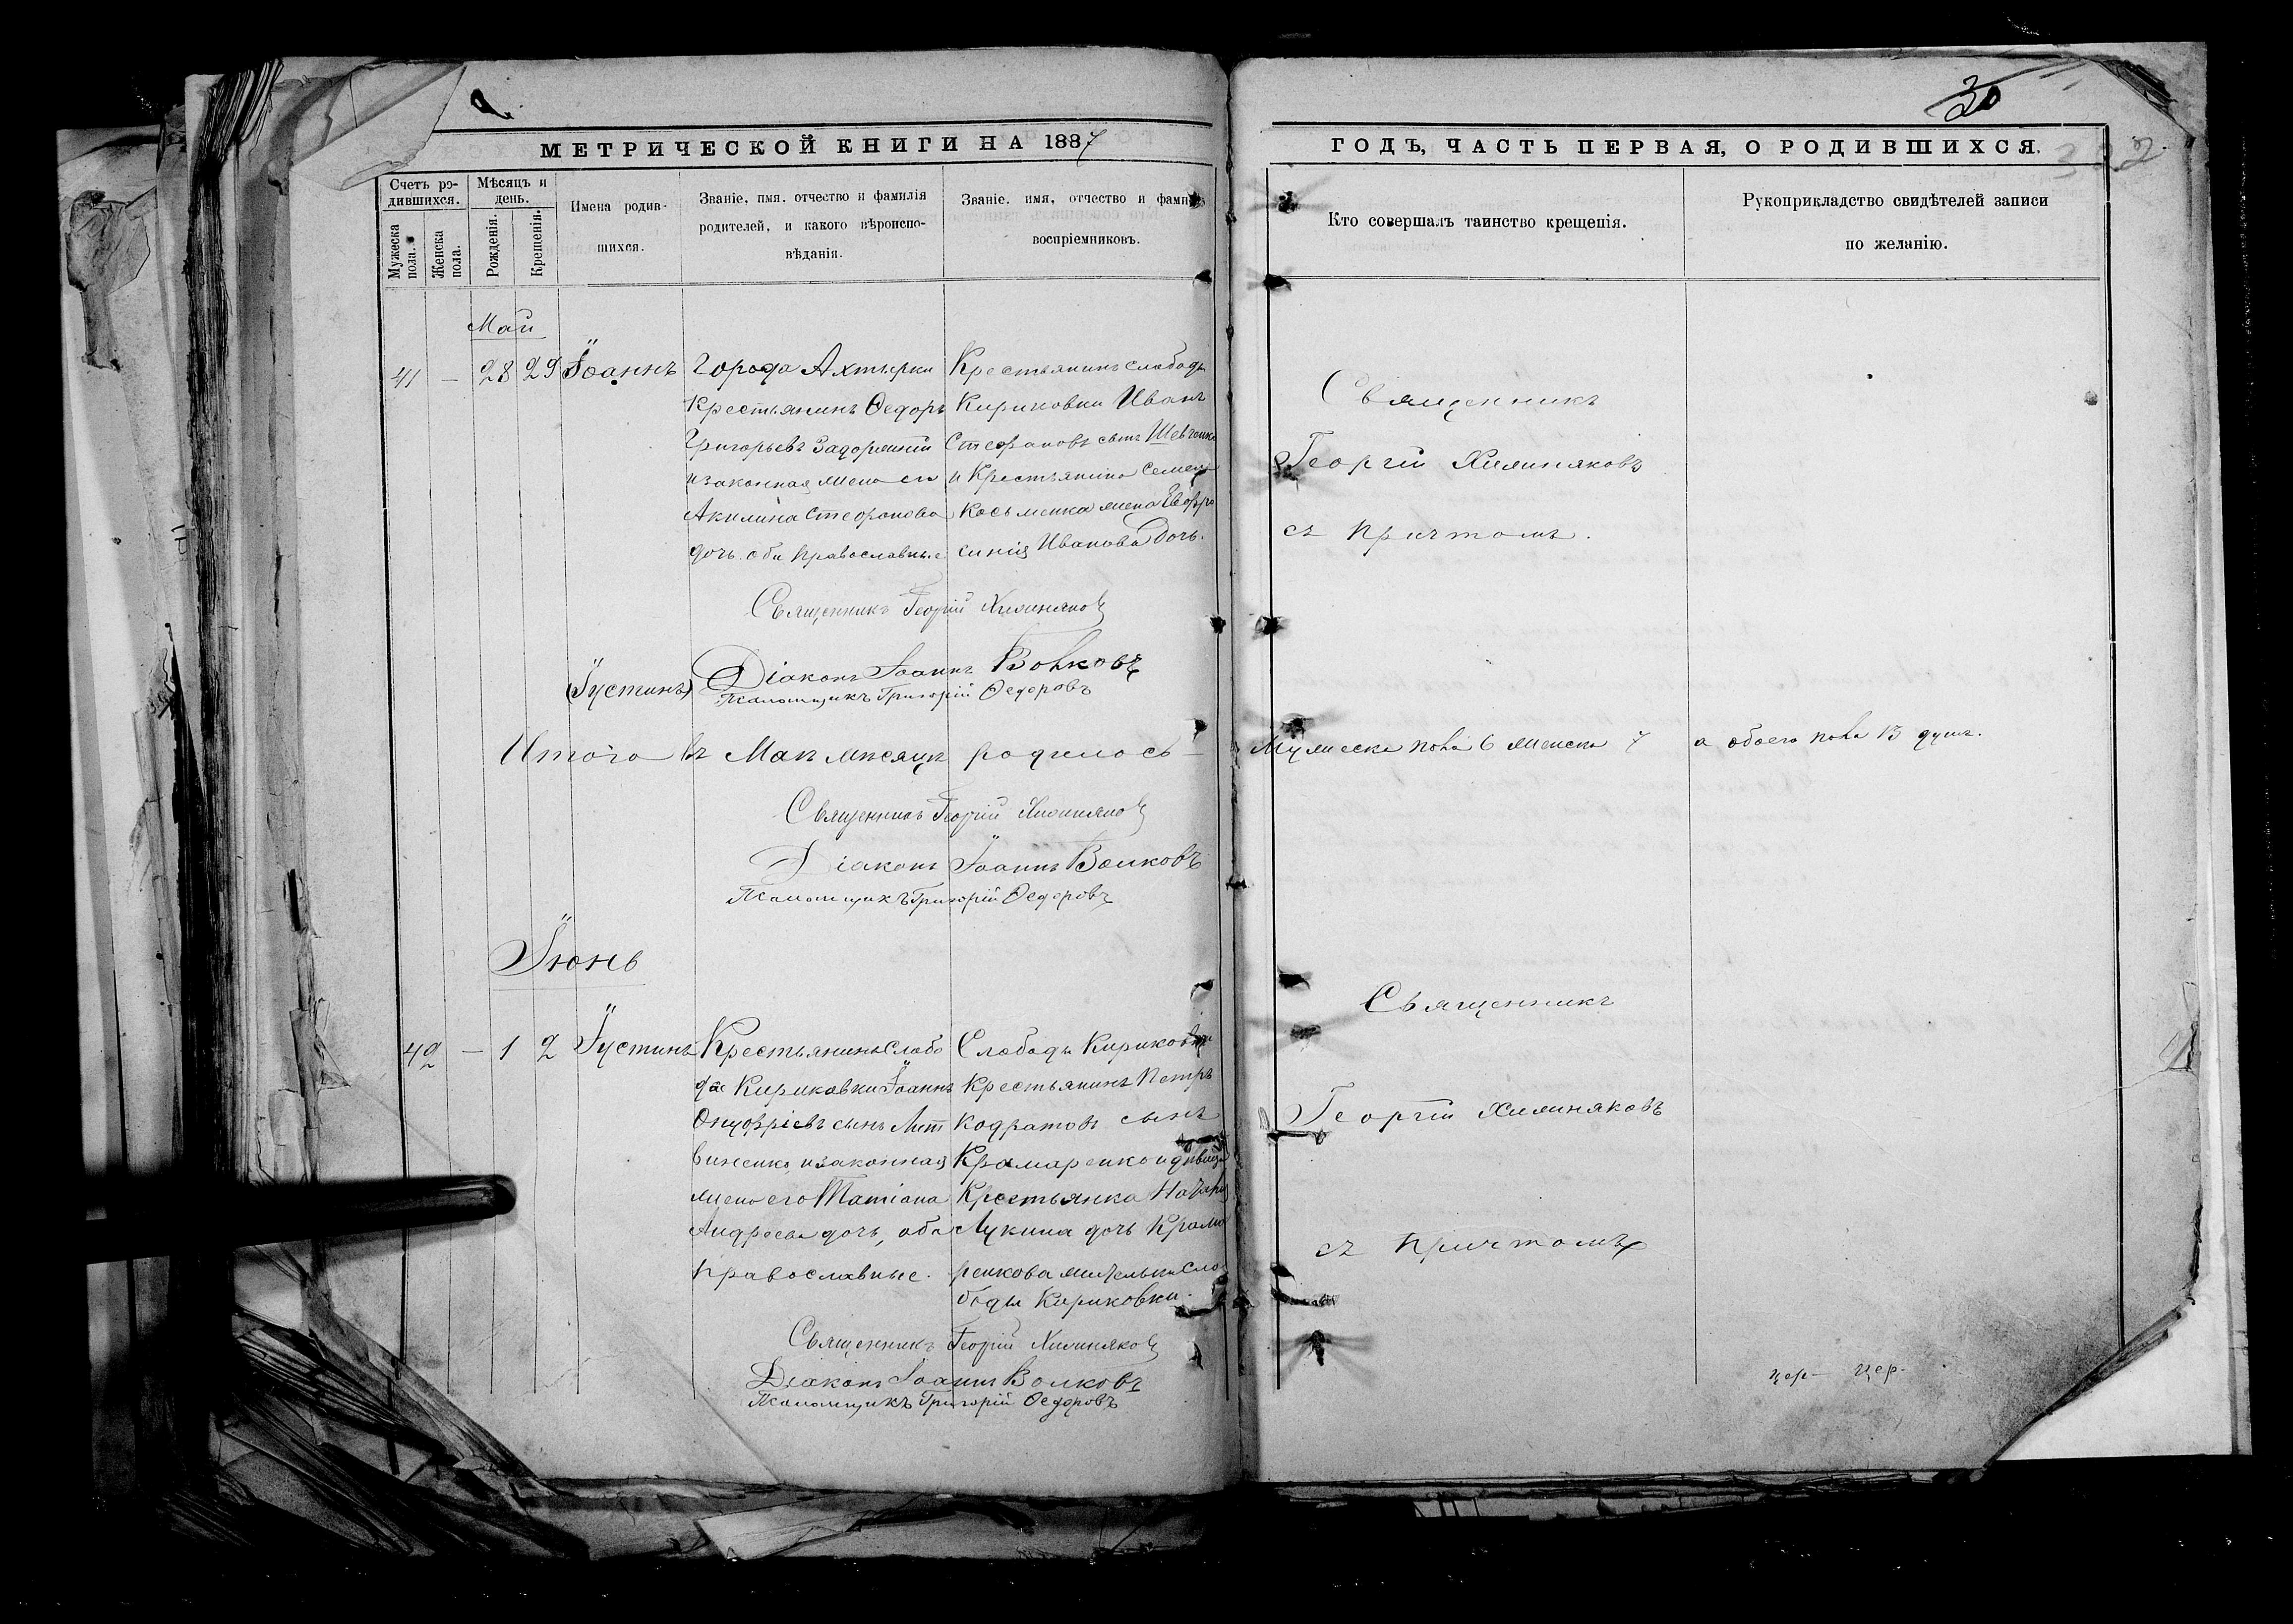 30
МЕТРИЧЕСКОЙ КНИГИ НА 1887
ГОДЪ, ЧАСТЬ ПЕРВАЯ, О РОДИВШИХСЯ.
Счетъ ро-
дившихся.
Мужеска пола.
Женска пола.
Мѣсяцъ и
день.
Рожденія.
Крещенія.
Имена родив-
шихся.
Званіе, имя, отчество и фамилія
родителей, и какого вѣроиспо-
вѣданія.
Званіе, имя, отчество и фамилія
воспріемниковъ.
Кто совершалъ таинство крещенія.
Рукоприкладство свидѣтелей записи
по желанію.
Май
41 — 28 29 Іоаннъ
Города Ахтырки
Крестьянинъ Ѳедоръ
Григорьевъ Задорожній
и законная жена его
Акилина Стефанова
дочь. оба православные
Крестьянинъ слободы
Кириковки Иванъ
Стефановъ сынъ Шевченко
и Крестьянина Семена
Косьменка жена Евфро
синія Иванова дочь.
Священникъ
Георгій
съ причтомъ.
Священникъ Георгій
Діаконъ Іоаннъ Волковъ
Псаломщикъ Григорій Ѳедоровъ
(Іустинъ)
Итого въ Маѣ мѣсяцѣ родилось —
Мужеска пола 6 Женска 7 а обоего пола 13 душъ.
Священникъ Георгій
Діаконъ Іоаннъ Волковъ
Псаломщикъ Григорій Ѳедоровъ
Іюнь
42 — 1 2 Іустинъ
Крестьянинъ Слобо
ды Кириковки Іоаннъ
Онуфріевъ сынъ Лит
виненко, и законная
жена его Татіана
Андреева дочь, оба
православные.
Слободы Кириковки
Крестьянинъ Петръ
Кодратовъ сынъ
Крамаренко и дѣвица
Крестьянка
Лукина дочь Крама
ренкова жительки Сло
боды Кириковки.
Священникъ
Георгій
съ причтомъ
Священникъ Георгій
Діаконъ Іоаннъ Волковъ
Псаломщикъ Григорій Ѳедоровъ